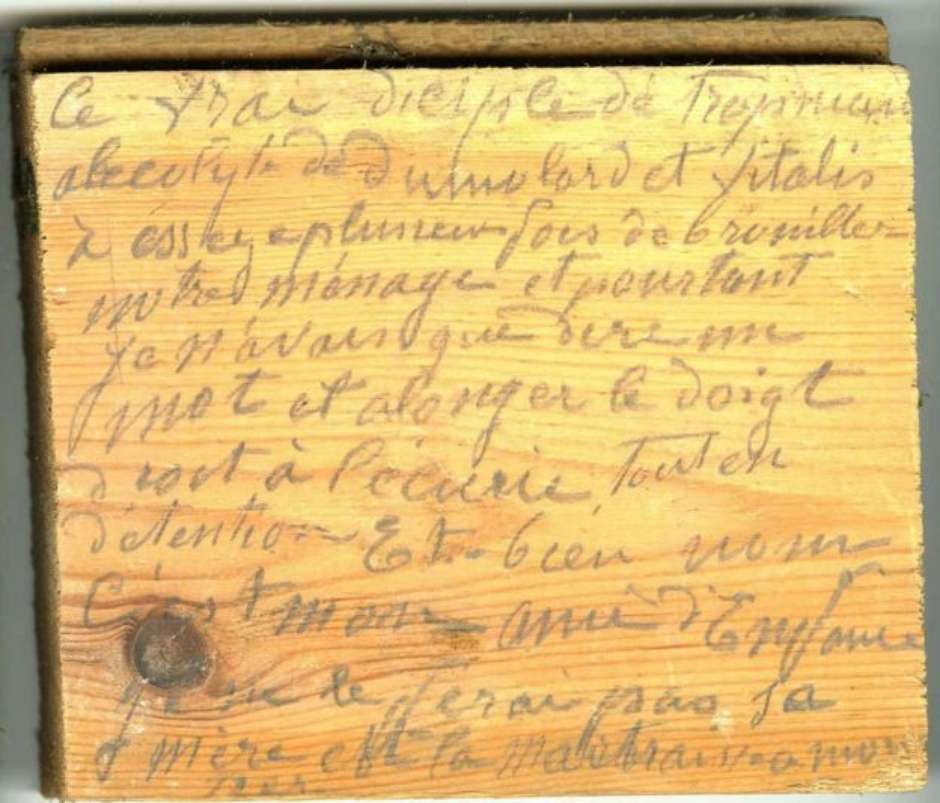 Ce vrai diciple de Tropmann
alecolyte de Dumolard et Vitalis
à esseye plusieur fois de brouiller
notre ménage et pourtant
je n'avais que dire un
mot et alonger le doigt
droit à l'écurie, tout en
détention Et bien nom
C'est mon ami d'Enfance
je ne le ferai pas sa
mère est la maitraisse a mon